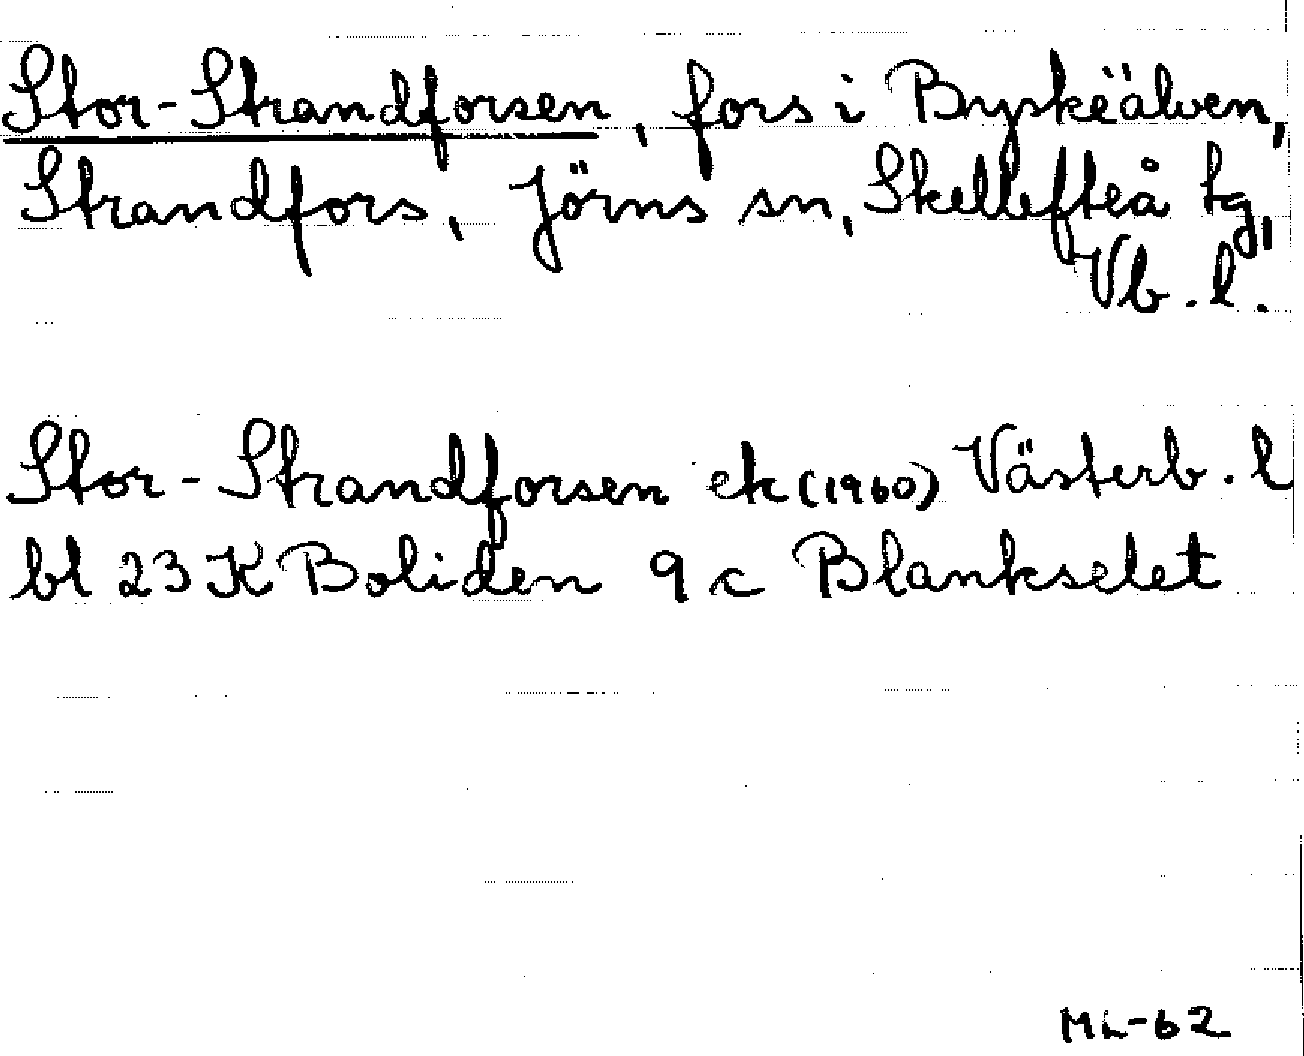 Stor-Strandforsen, fors i Byskeälven,
Strandfors, Jörns sn, Skellefteå tg,
Vb. l.
Stor-Strandforsen ek (1960) Västerb. l
bl 23 K Boliden 9 c Blankselet
ML-62